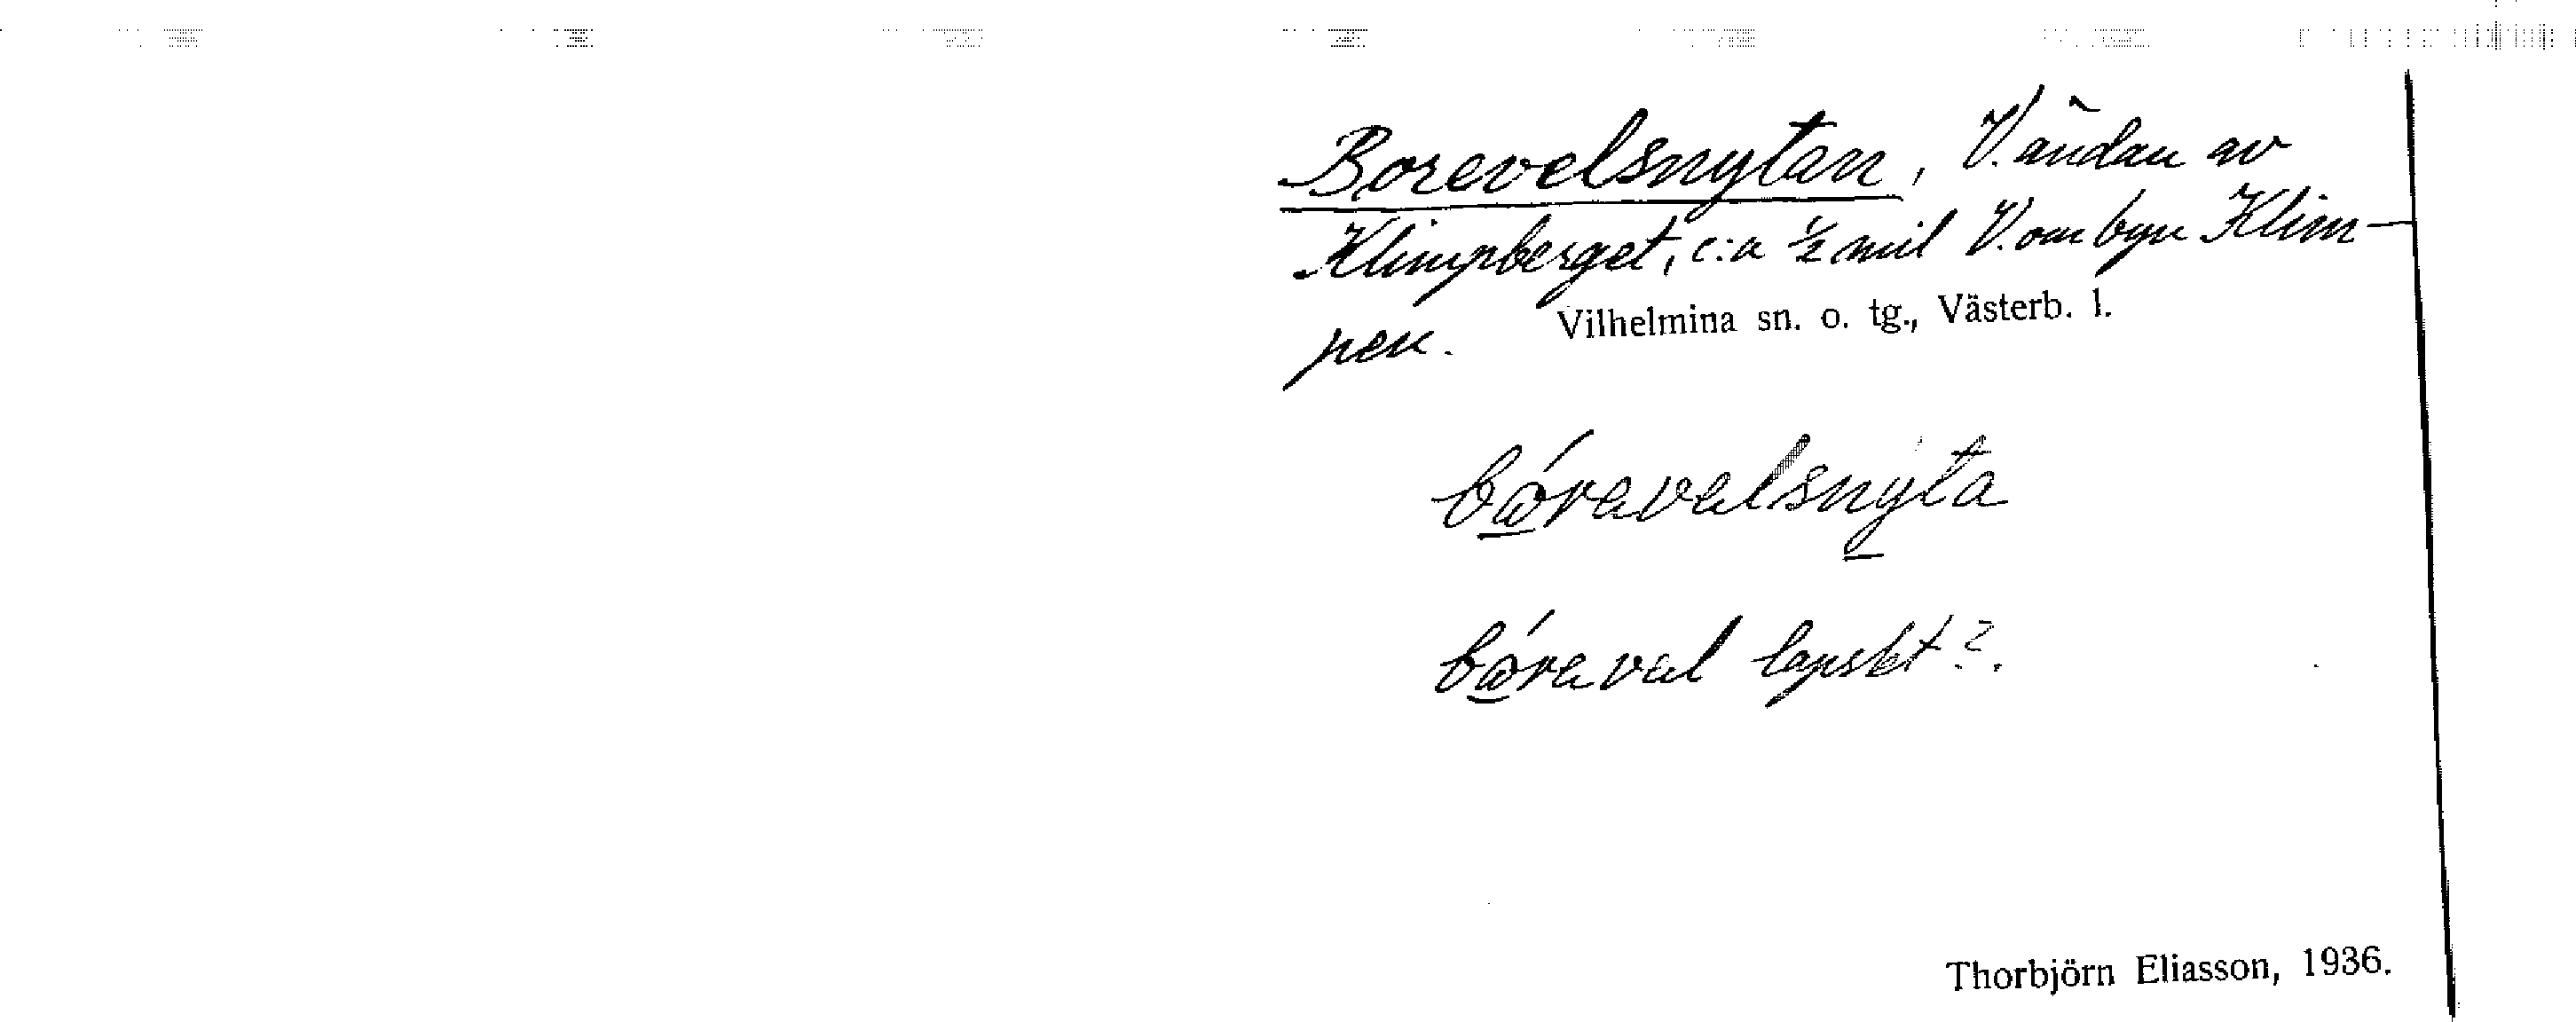 Borevelsnytan, V. ändan av
Klimpberget, c:a ½ mil V. om byn Klim-
pen. Vilhelmina sn. o. tg., Västerb. l.
bóravalsnýta
bóraval lapskt?.
Thorbjörn Eliasson, 1936.